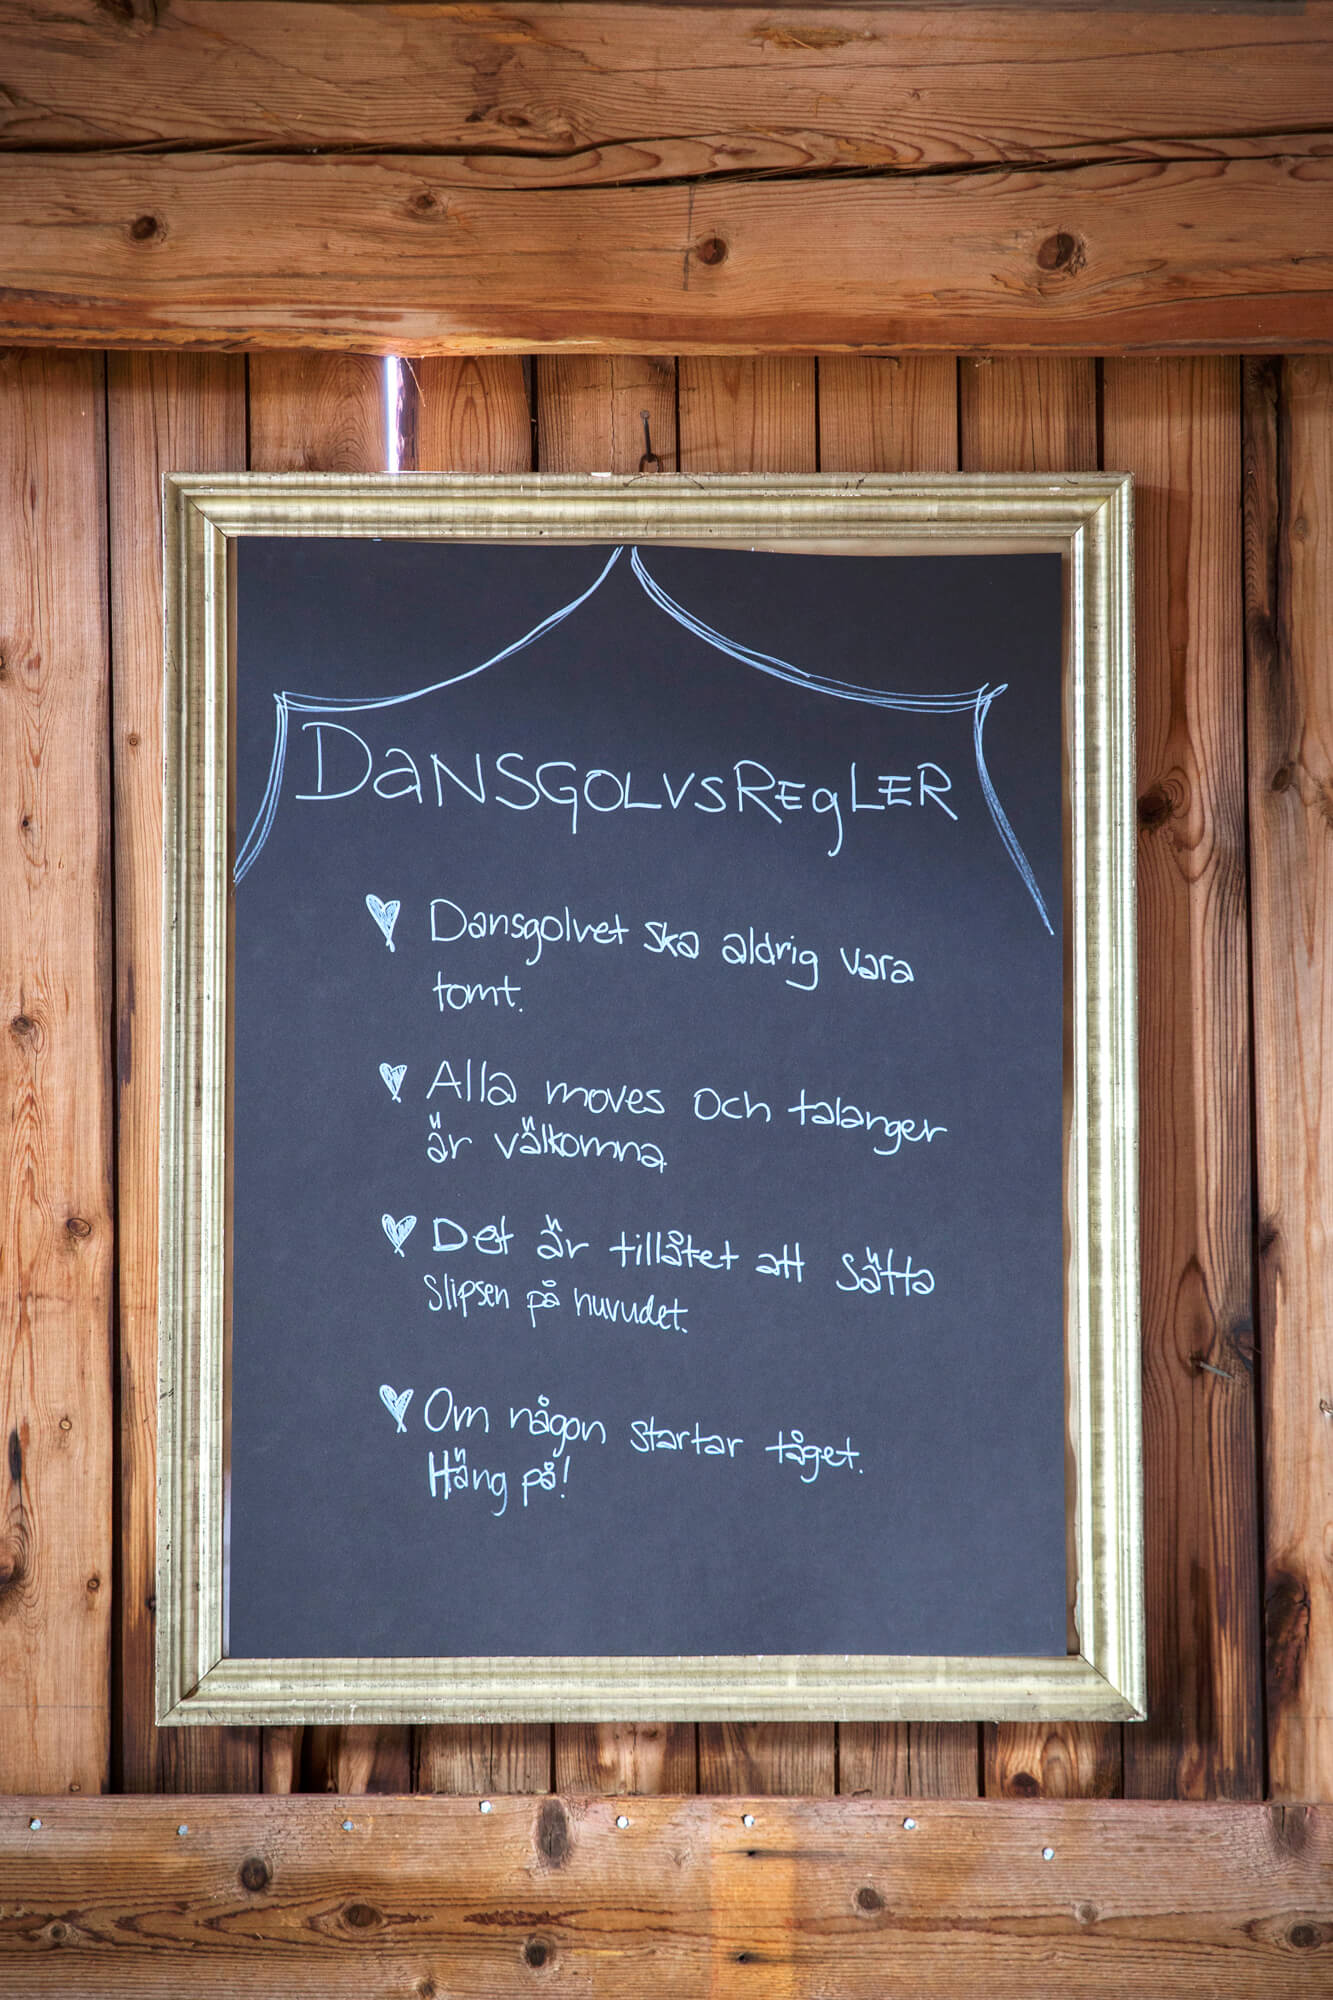 DaNSGOLVSREgLER
Dansgolvet ska aldrig vara
tomt.
Alla moves och talanger
är välkomna.
Det är tillåtet att sätta
slipsen på huvudet.
Om någon startar tåget.
Häng på!